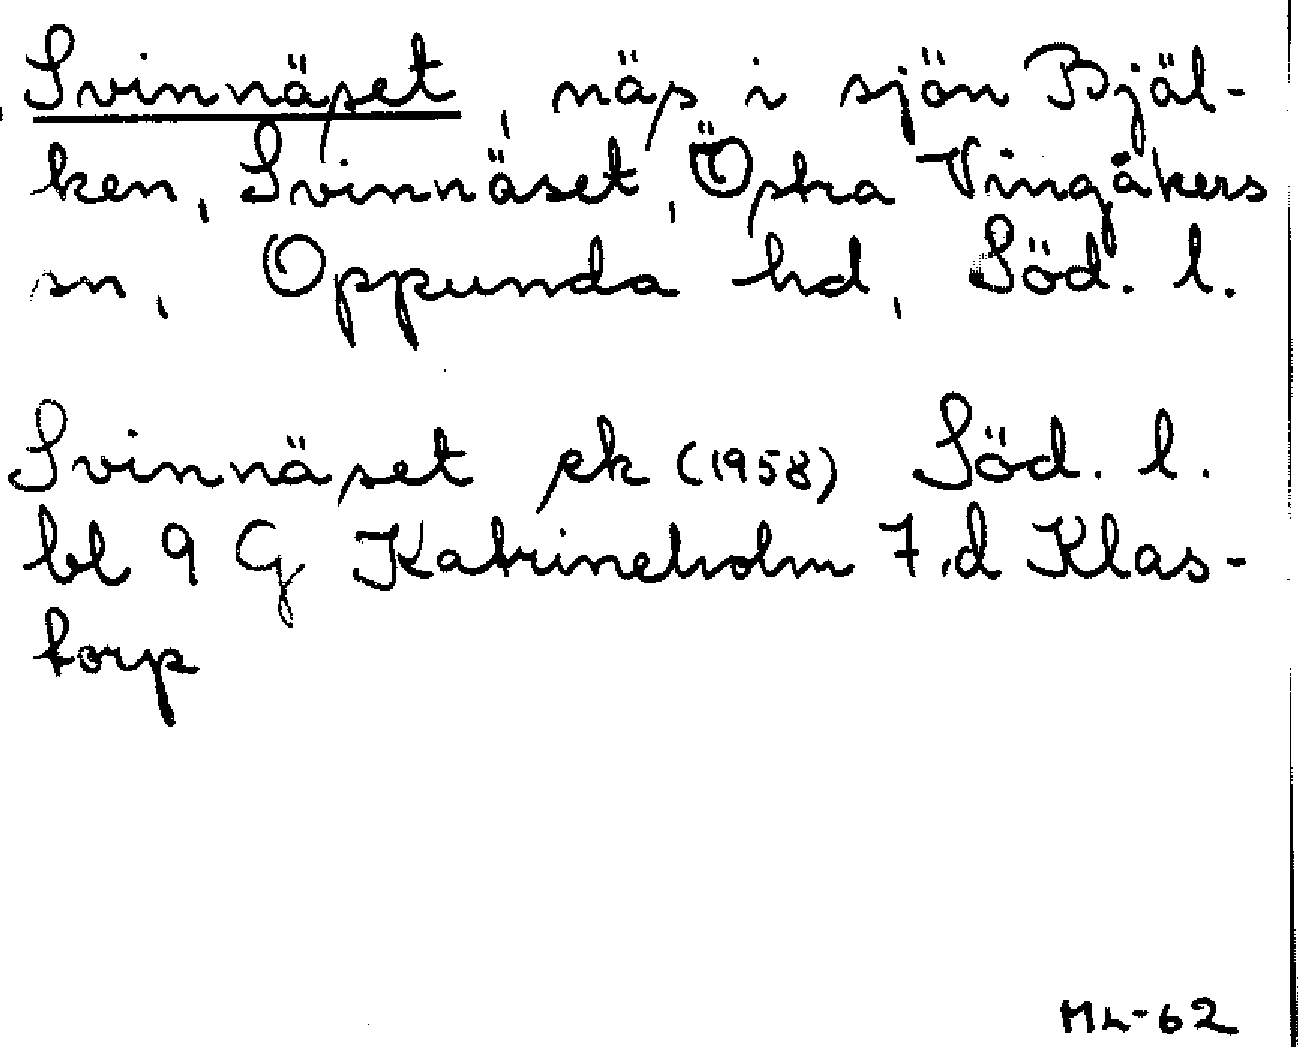 Svinnäset, näs i sjön Bjäl-
ken, Svinnäset, Östra Vingåkers
sn, Oppunda hd, Söd. l.
Svinnäset ek (1958) Söd. l.
bl 9 G Katrineholm 7 d Klas-
torp
ML-62